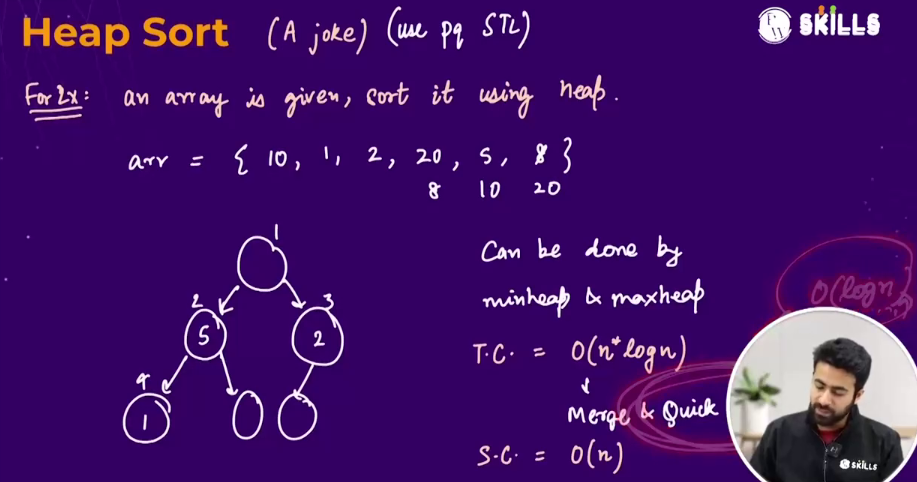 Heap Sort (A joke) (use pq STL)
PW SKILLS
For Ex: an array is given, sort it using heap.
arr = { 10, 1, 2, 20, 5, 8 }
8 10 20
1
2 3
5 2
4
1
Can be done by
minheap & maxheap
O(logn)
T.C. = O(n*logn)
↓
Merge & Quick
S.C. = O(n)
SKILLS